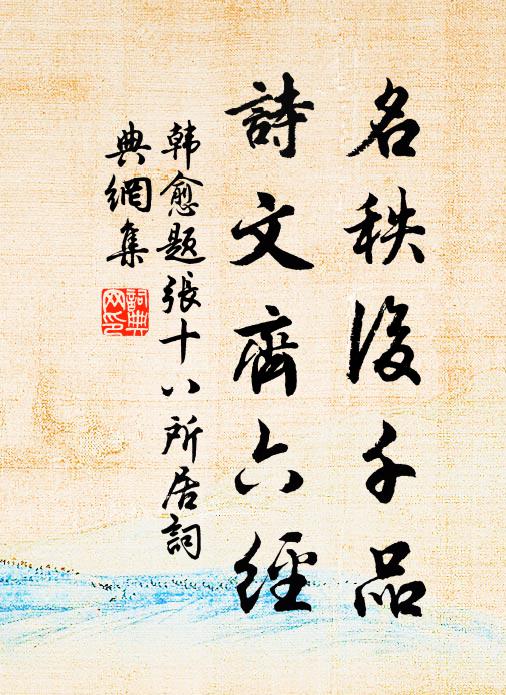 名秩後千品
詩文齊六經
韩愈题張十八所居詞
典網集
詞典網印